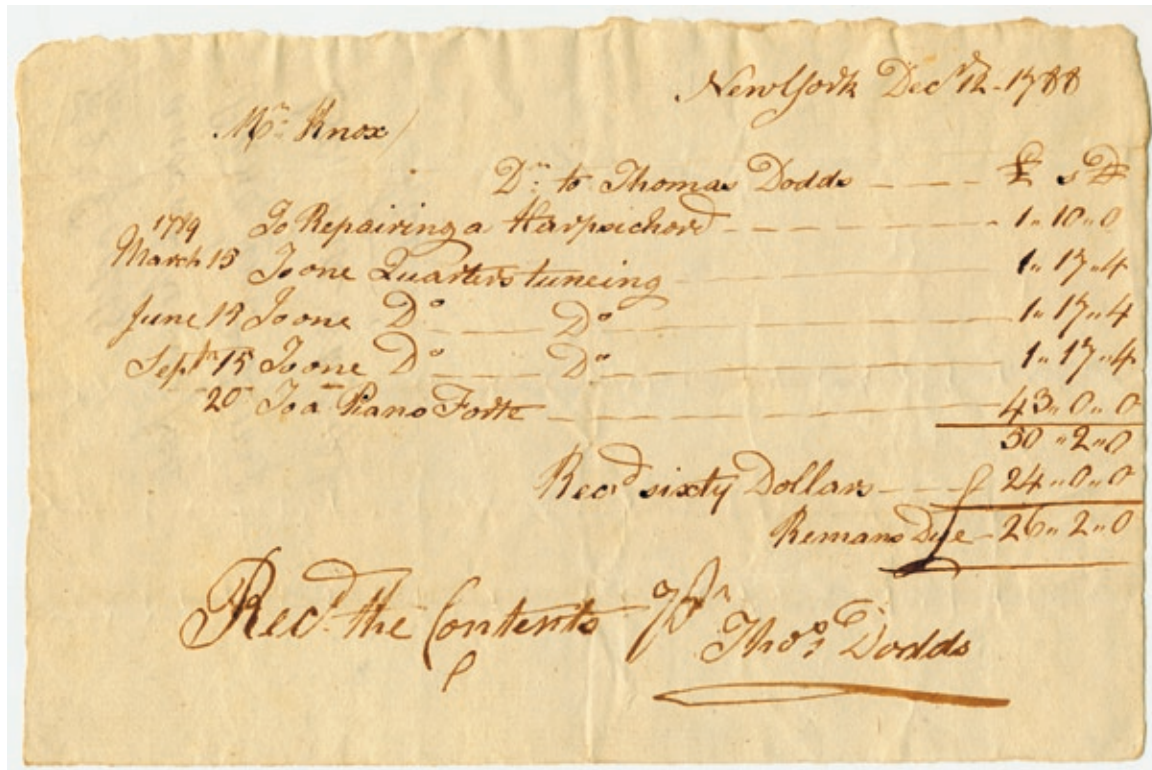 New York Decr 12 - 1788
Mr Knox
Dr to Thomas Dodds £ s D
To Repairing a Harpsichord 1 " 10 " 0
1789
March 15 To one Quarters tuneing 1 " 17 " 4
June 15 To one Do Do 1 " 17 " 4
Septr 15 To one Do Do 1 " 17 " 4
20 To a Piano Forte 43 " 0 " 0
50 " 2 " 0
Recd sixty Dollars 24 " 0 " 0
Remans Due 26 " 2 " 0
Recd the Contents Pr
Thos Dodds